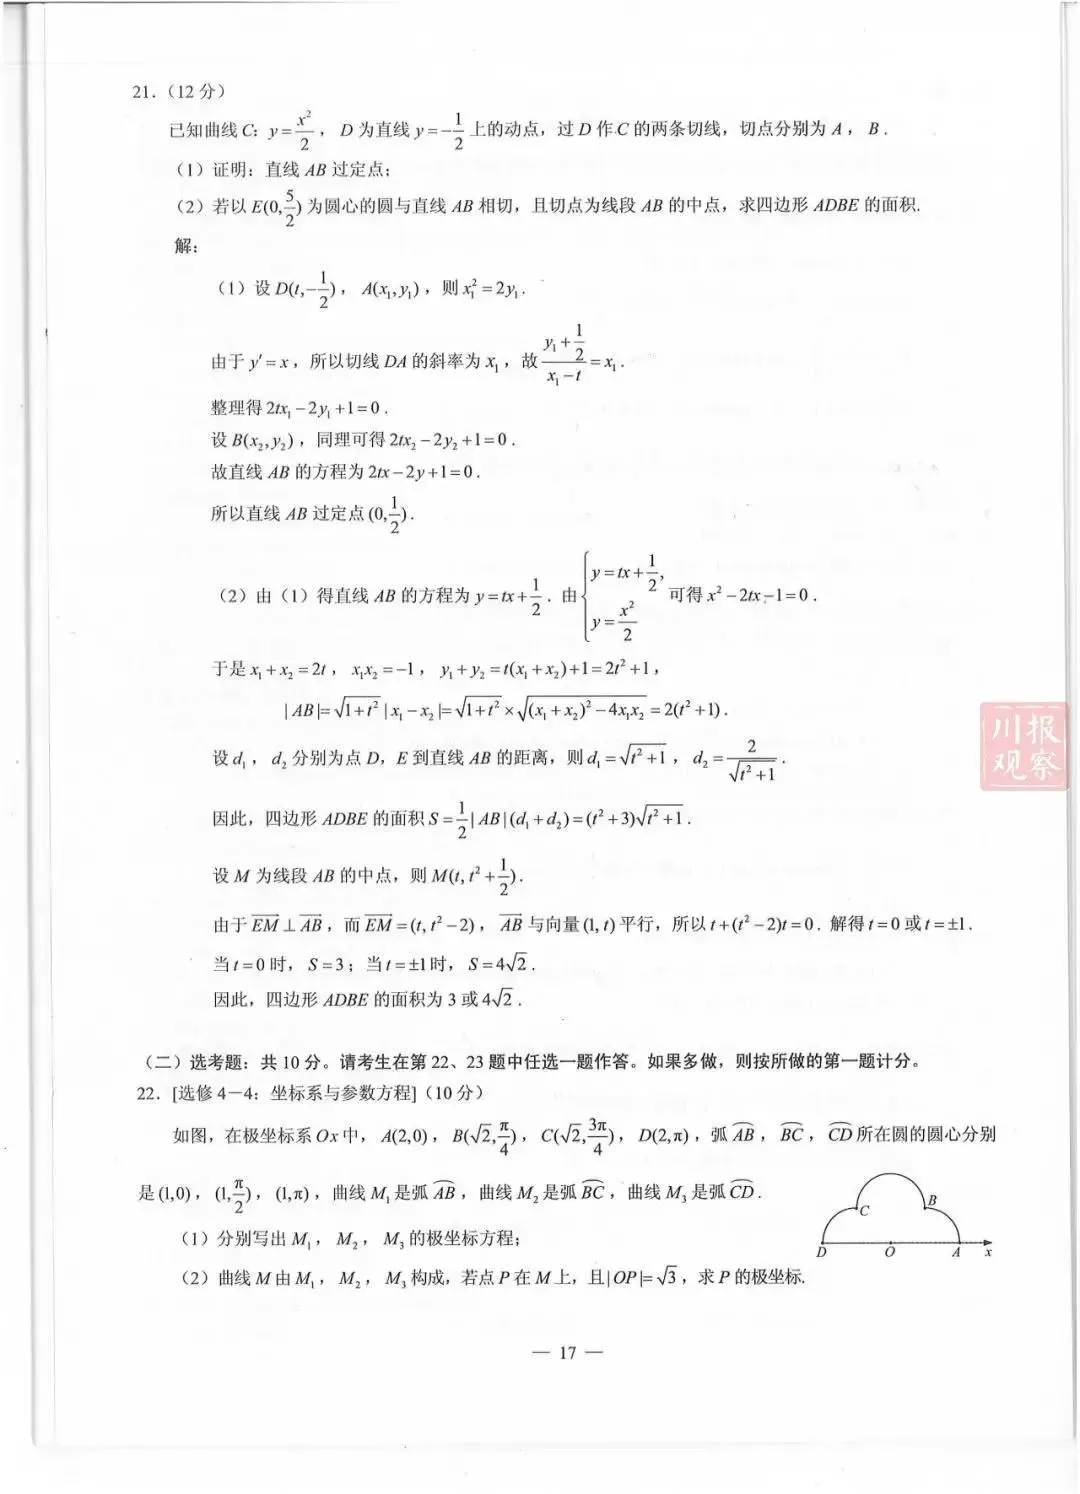 21.（12 分）
已知曲线 C: y=x²/2， D 为直线 y=-1/2 上的动点，过 D 作 C 的两条切线，切点分别为 A， B.
（1）证明：直线 AB 过定点；
（2）若以 E(0,5/2) 为圆心的圆与直线 AB 相切，且切点为线段 AB 的中点，求四边形 ADBE 的面积.
解：
（1）设 D(t,-1/2)， A(x₁,y₁)，则 x₁²=2y₁.
由于 y′=x，所以切线 DA 的斜率为 x₁，故 (y₁+1/2)/(x₁-t)=x₁.
整理得 2tx₁-2y₁+1=0.
设 B(x₂,y₂)，同理可得 2tx₂-2y₂+1=0.
故直线 AB 的方程为 2tx-2y+1=0.
所以直线 AB 过定点 (0,1/2).
（2）由（1）得直线 AB 的方程为 y=tx+1/2. 由 { y=tx+1/2, y=x²/2 可得 x²-2tx-1=0.
于是 x₁+x₂=2t， x₁x₂=-1， y₁+y₂=t(x₁+x₂)+1=2t²+1，
|AB|=√(1+t²)|x₁-x₂|=√(1+t²)×√((x₁+x₂)²-4x₁x₂)=2(t²+1).
设 d₁， d₂ 分别为点 D，E 到直线 AB 的距离，则 d₁=√(t²+1)， d₂=2/√(t²+1).
因此，四边形 ADBE 的面积 S=1/2|AB|(d₁+d₂)=(t²+3)√(t²+1).
设 M 为线段 AB 的中点，则 M(t,t²+1/2).
由于 EM⊥AB，而 EM=(t,t²-2)， AB 与向量 (1,t) 平行，所以 t+(t²-2)t=0. 解得 t=0 或 t=±1.
当 t=0 时， S=3；当 t=±1 时， S=4√2.
因此，四边形 ADBE 的面积为 3 或 4√2.
（二）选考题：共 10 分。请考生在第 22、23 题中任选一题作答。如果多做，则按所做的第一题计分。
22．[选修 4－4：坐标系与参数方程]（10 分）
如图，在极坐标系 Ox 中， A(2,0)， B(√2,π/4)， C(√2,3π/4)， D(2,π)，弧 AB， BC， CD 所在圆的圆心分别
是 (1,0)， (1,π/2)， (1,π)，曲线 M₁ 是弧 AB，曲线 M₂ 是弧 BC，曲线 M₃ 是弧 CD.
（1）分别写出 M₁， M₂， M₃ 的极坐标方程；
（2）曲线 M 由 M₁， M₂， M₃ 构成，若点 P 在 M 上，且|OP|=√3，求 P 的极坐标.
C B
D O A x
— 17 —
川报
观察